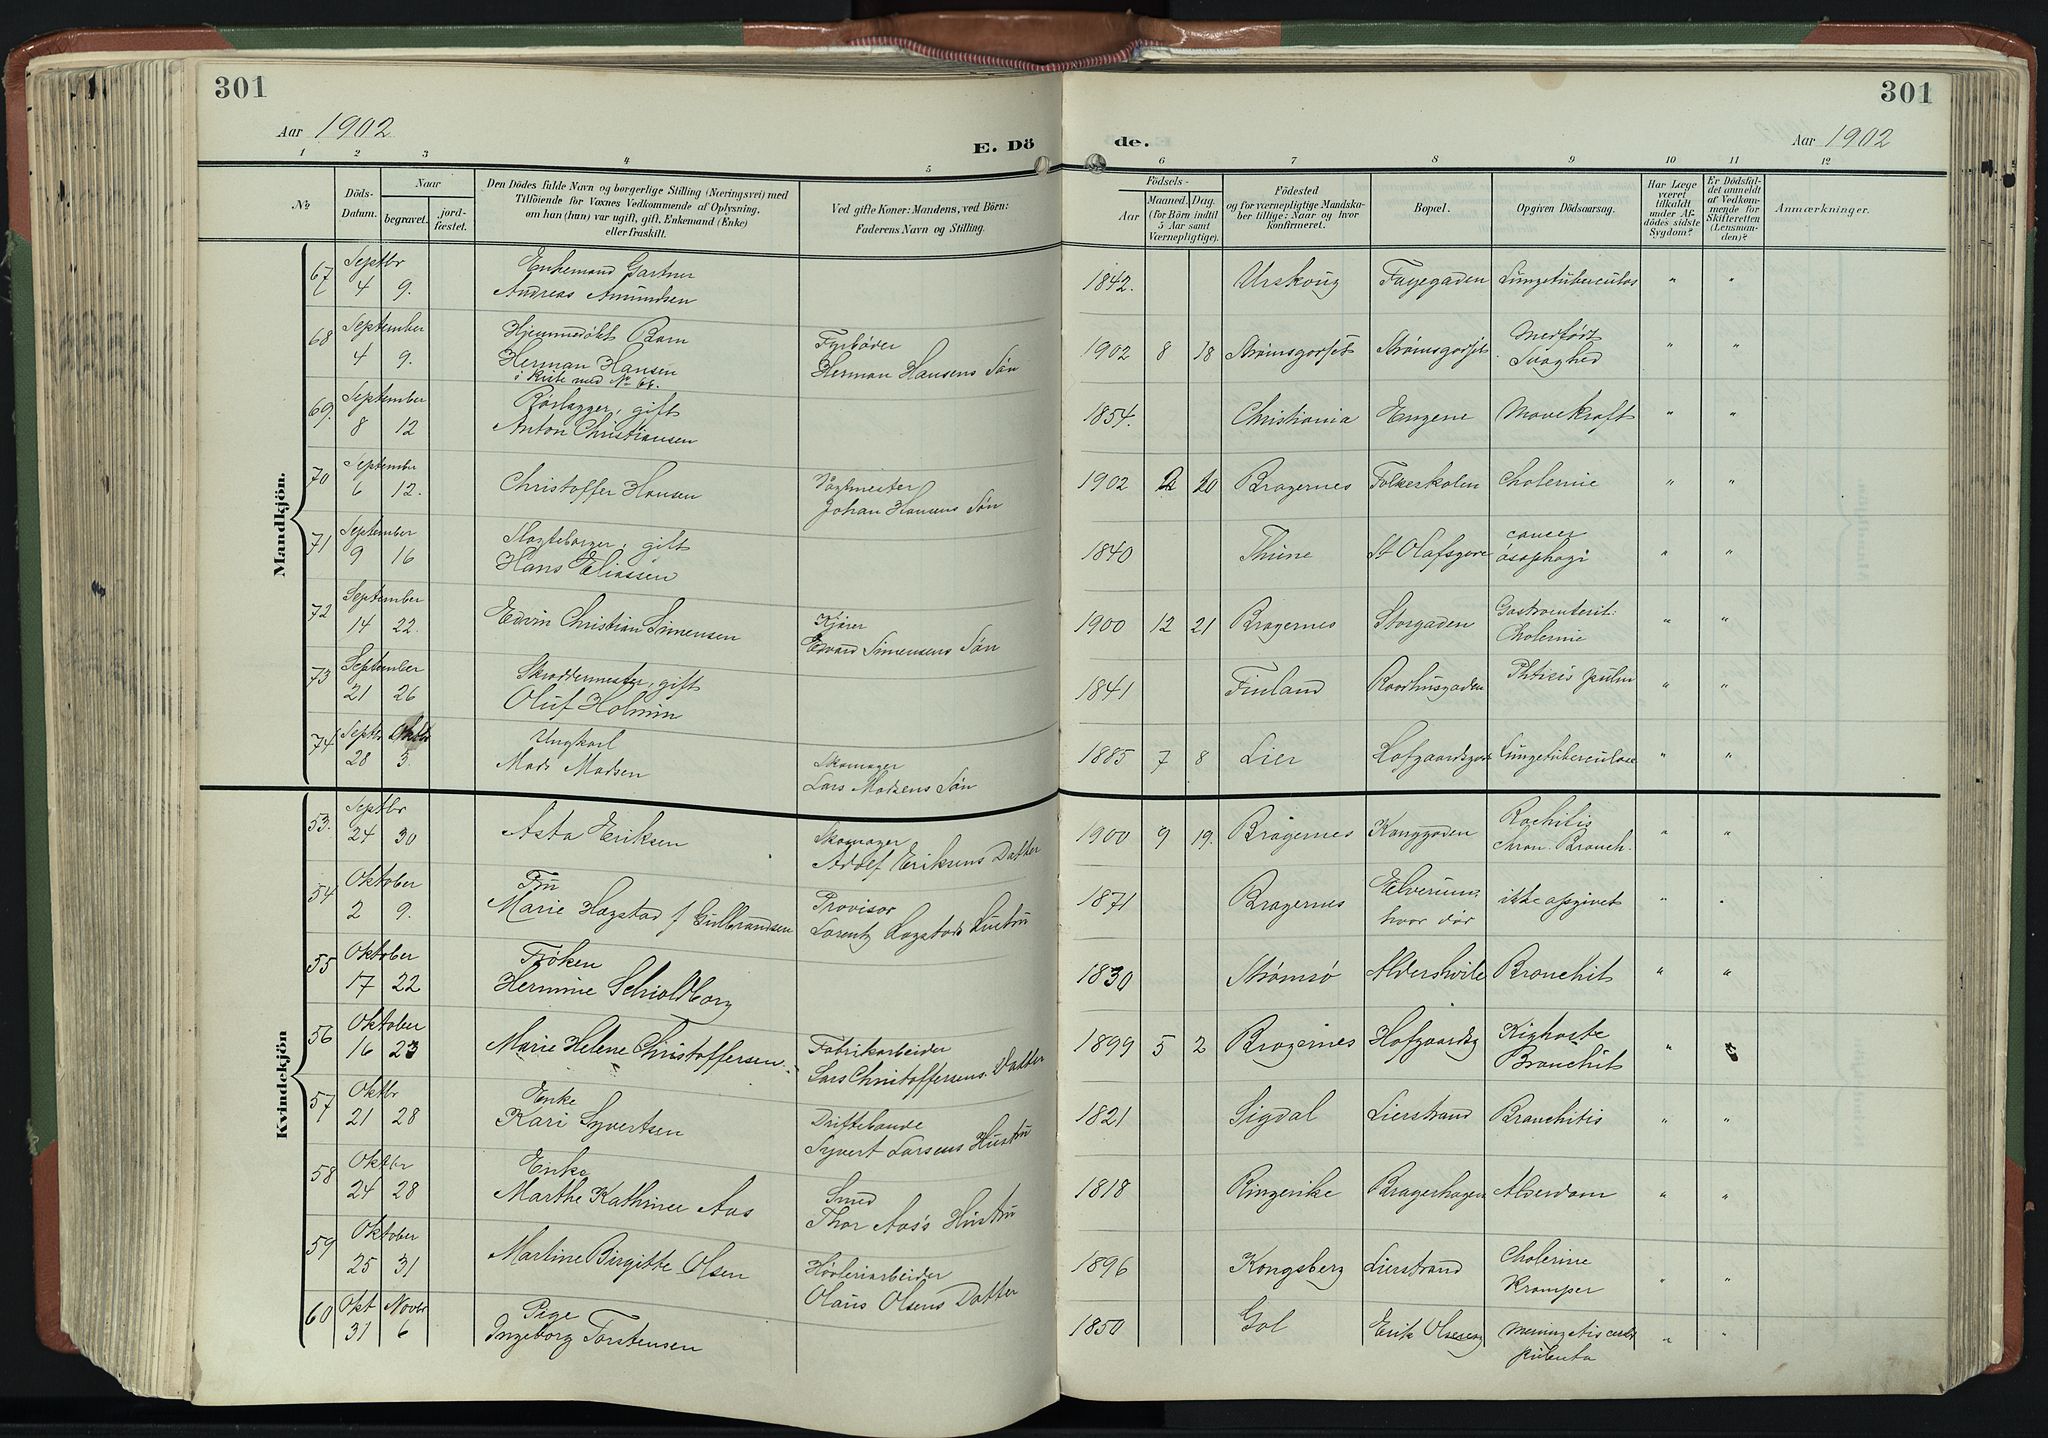 301
301
Aar 1902
E. Dö
de.
Aar 1902
1 2 3 4 5
6 7 8 9 10 11 12
No
Döds-
Datum.
Naar
begravet.
jord-
fæstet.
Den Dödes fulde Navn og borgerlige Stilling (Næringsvei) med
Tilföiende for Voxnes Vedkommende af Oplysning,
om han (hun) var ugift, gift, Enkemand (Enke)
eller fraskilt.
Ved gifte Koner: Mandens, ved Börn:
Faderens Navn og Stilling.
Födsels-
Aar
Maaned. Dag.
(for Börn indtil
5 Aar samt
Værnepligtige).
Födested
og for værnepligtige Mandska-
ber tillige: Naar og hvor
konfirmeret.
Bopæl.
Opgiven Dödsaarsag.
Har Læge
været
tilkaldt
under Af-
dödes sidste
Sygdom?
Er Dödsfal-
det anmeldt
af Vedkom-
mende for
Skifteretten
(Lensman-
den)?
Anmærkninger.
Mandkjön.
67 Septbr 4 9. Enkemand Gartner
Andreas Amundsen
1842. Urskoug Fayegaden Lungetuberculos " "
68 September 4 9. Hjemmedøbt Barn
Herman Hansen
i Kiste med No 66.
Fyrbøder
Herman Hansens Søn
1902 8 18 Strømsgodset Strømsgodset Medfødt
Svaghed " "
69. September 8 12 Rørlægger, gift
Anton Christiansen
1854. Christiania Engene Mavekræft " "
70 September 6 12. Christoffer Hansen
Vagtmester
Johan Hansens Søn
1902 2 20 Bragernes Folkeskolen Cholerine " "
71 September 9 16 gift
Hans Eliassen
1840 Thune St Olafsgade cancer
øsophagi " "
72 September 14 22. Edvin Christian Simensen
Kjører
Edvard Simensens Søn
1900 12 21 Bragernes Storgaden Gastroenterit:
Cholerine " "
73 September 21 26 Skræddermester, gift
Oluf Holmin
1841 Finland Raadhusgaden Phtisis pulm " "
74 Septbr 28 Oktbr 5. Ungkarl
Mads Madsen
Skomager
Lars Madsens Søn
1885 7 8 Lier Hofgaardsgad Lungetuberculose " "
Kvindekjön
53. Septbr 24 30 Asta Eriksen
Skomager
Adolf Eriksens Datter
1900 9 19. Bragernes Konggaden Rachitis
Chron. Bronch. " "
54 Oktober 2 9. Fru
Marie Hagstad f Gulbrandsen
Provisor
Lorentz Hagstads Hustru
1871 Bragernes Elverum,
hvor død ikke opgivet " "
55 Oktober 17 22 Frøken
Hermine Schioldborg
1830 Strømsø Aldershvile Bronchit " "
56 Oktober 16 23 Marie Helene Christoffersen
Fabrikarbeider
Lars Christoffersens Datter
1899 5 2 Bragernes Hofgaardsg Kighoste
Bronchit "
57 Oktbr 21 28 Enke
Kari Syvertsen
Driftebonde
Syvert Larsens Hustru
1821 Sigdal Lierstrand Bronchitis " "
58 Oktbr 24 28 Enke
Marthe Kathrine Aas
Smed
Thor Aas's Hustru
1818 Ringerike Bragerhagen Alderdom " "
59 Oktober 25 31 Martine Birgitte Olsen
Høvleriarbeider
Olaus Olsens Datter
1896 Kongsberg Lierstrand Cholerine
Kramper " "
60 Okt 31 Novbr 6 Pige
Ingeborg Torstensen
1850 Gol Erik Olsesg
" "